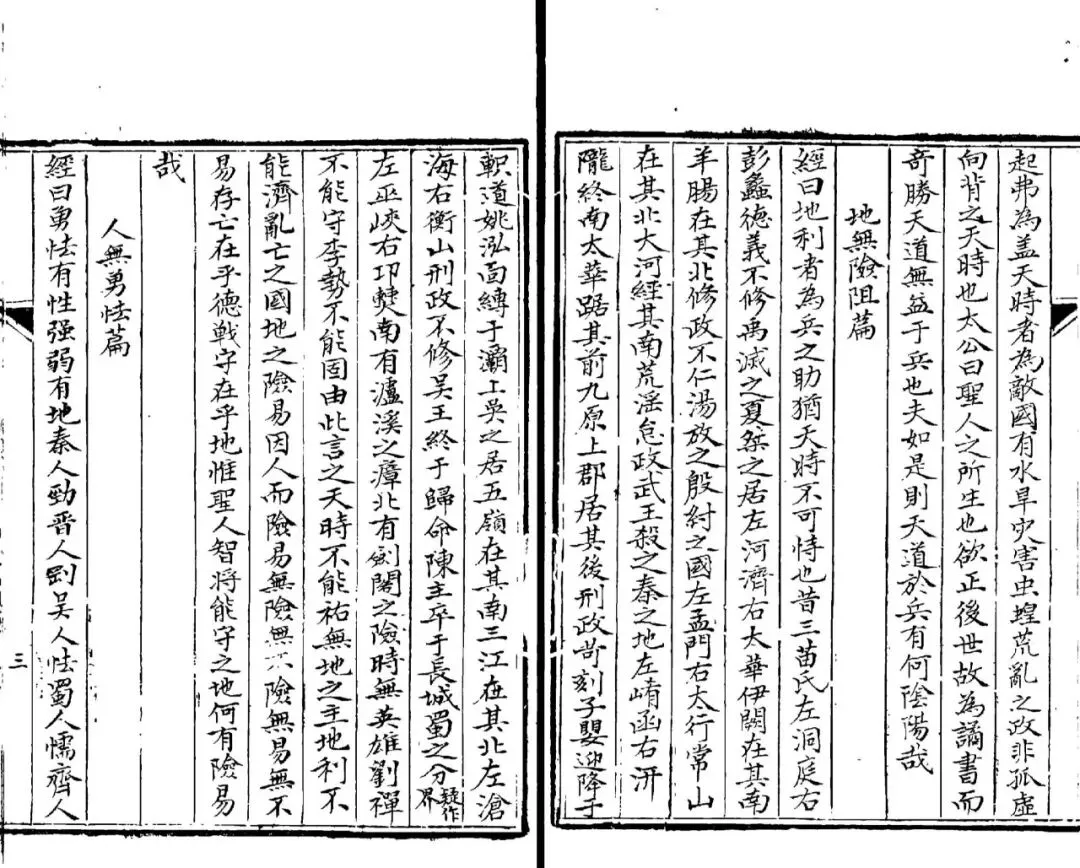 起弗為盖天時者為敵國有水旱灾害虫蝗荒亂之政非孤虛
向背之天時也太公曰聖人之所生也欲正後世故為譎書而
竒勝天道無益于兵也夫如是則天道於兵有何陰陽哉
地無險阻篇
經曰地利者為兵之助猶天時不可恃也昔三苗氏左洞庭右
彭蠡德義不修禹滅之夏桀之居左河濟右太華伊闕在其南
羊腸在其北修政不仁湯放之殷紂之國左孟門右太行常山
在其北大河經其南荒滛怠政武王殺之秦之地左崤函右汧
隴終南太華踞其前九原上郡居其後刑政苛刻子嬰迎降于
軹道姚泓面縛于灞上吳之居五嶺在其南三江在其北左滄
海右衡山刑政不修吳王終于歸命陳主卒于長城蜀之分疑作界
左巫峽右卭僰南有瀘溪之瘴北有劍閣之險時無英雄劉禪
不能守李勢不能固由此言之天時不能祐無地之主地利不
能濟亂亡之國地之險易因人而險易無險無不險無易無不
易存亡在乎德戰守在乎地惟聖人智將能守之地何有險易
哉
人無勇怯篇
經曰勇怯有性强弱有地秦人勁晋人剛吳人怯蜀人懦齊人
三